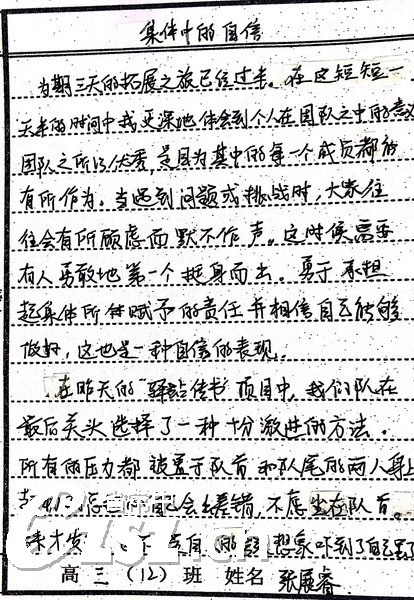 集体中的自信
为期三天的拓展之旅已经过去。在这短短一
天半的时间中我更深地体会到个人在团队之中的意义
团队之所以优秀，是因为其中的每一个成员都能
有所作为。当遇到问题或挑战时，大家往
往会有所顾虑而默不作声。这时候需要
有人勇敢地第一个挺身而出。勇于承担
起集体所付赋予的责任并相信自己能够
做好，这也是一种自信的表现。
在昨天的“驿站传书”项目中，我们队在
最后关头选择了一种十分激进的方法。
所有的压力都被置于队首和队尾的两人身上
自己会出差错，不愿坐在队首。
才发 想象吓到了自己罢了
高三（12）班 姓名 张展睿